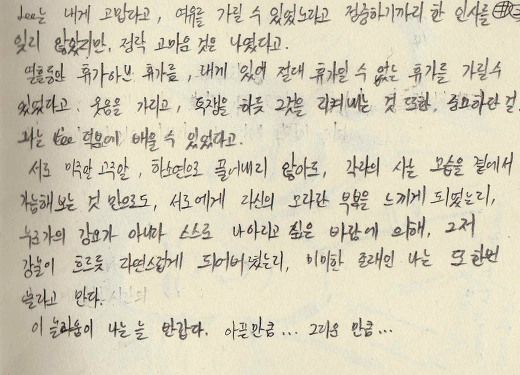 Lee는 내게 고맙다고, 여유를 가질 수 있었노라고 정중하기까지 한 인사를
잊지 않았지만, 정작 고마운 것은 나였다고.
열흘동안 휴가아닌 휴가를, 내게 있어 절대 휴가일 수 없는 휴가를 가질수
있었다고. 웃음을 가지고, 투쟁을 하듯 그것을 지켜내는 것 또한, 중요하단 걸
나는 Lee 덕분에 배울 수 있었다고.
서로 마주한 고주안, 하소연으로 끌어내리 않아도, 각자의 사는 모습을 곁에서
가늠해 보는 것 만으로도, 서로에게 자신의 모자란 부분을 느끼게 되었는지,
누군가의 강요가 아니라 스스로 나아지고 싶은 바람에 의해, 그저
강물이 흐르듯 자연스럽게 되어버렸는지, 미미한 존재인 나는 또 한번
놀라고 만다.
이 놀라움이 나는 늘 반갑다. 아플만큼... 그리운 만큼...